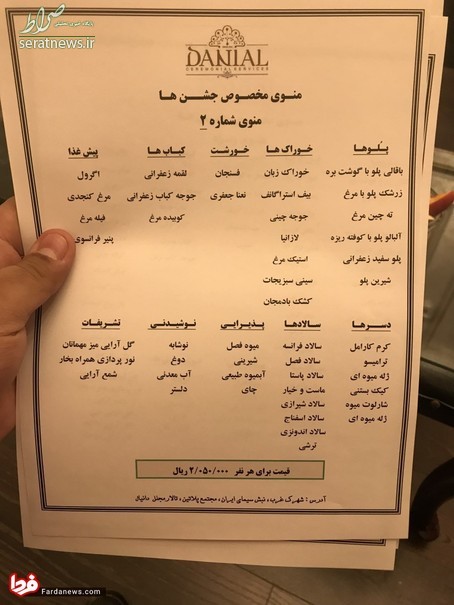 صراط
پایگاه خبری تحلیلی
seratnews.ir
DANIAL
CEREMONIAL SERVICES
منوی مخصوص جشن ها
منوی شماره ۲
پلوها
باقالی پلو با گوشت بره
زرشک پلو با مرغ
ته چین مرغ
آلبالو پلو با کوفته ریزه
پلو سفید زعفرانی
شیرین پلو
خوراک ها
خوراک زبان
بیف استراگانف
جوجه چینی
لازانیا
استیک مرغ
سینی سبزیجات
کشک بادمجان
خورشت
فسنجان
نعنا جعفری
کباب ها
لقمه زعفرانی
جوجه کباب زعفرانی
کوبیده مرغ
پیش غذا
اگرول
مرغ کنجدی
فیله مرغ
پنیر فرانسوی
دسرها
کرم کارامل
ترامیسو
ژله میوه ای
کیک بستنی
شارلوت میوه
ژله میوه ای
سالادها
سالاد فرانسه
سالاد فصل
سالاد پاستا
ماست و خیار
سالاد شیرازی
سالاد اسفناج
سالاد اندونزی
ترشی
پذیرایی
میوه فصل
شیرینی
آبمیوه طبیعی
چای
نوشیدنی
نوشابه
دوغ
آب معدنی
دلستر
تشریفات
گل آرایی میز مهمانان
نور پردازی همراه بخار
شمع آرایی
قیمت برای هر نفر ۲/۰۵۰/۰۰۰ ریال
آدرس : شهرک غرب، نبش سیمای ایران، مجتمع پلاتین، تالار مجلل دانیال
فردا
Fardanews.com